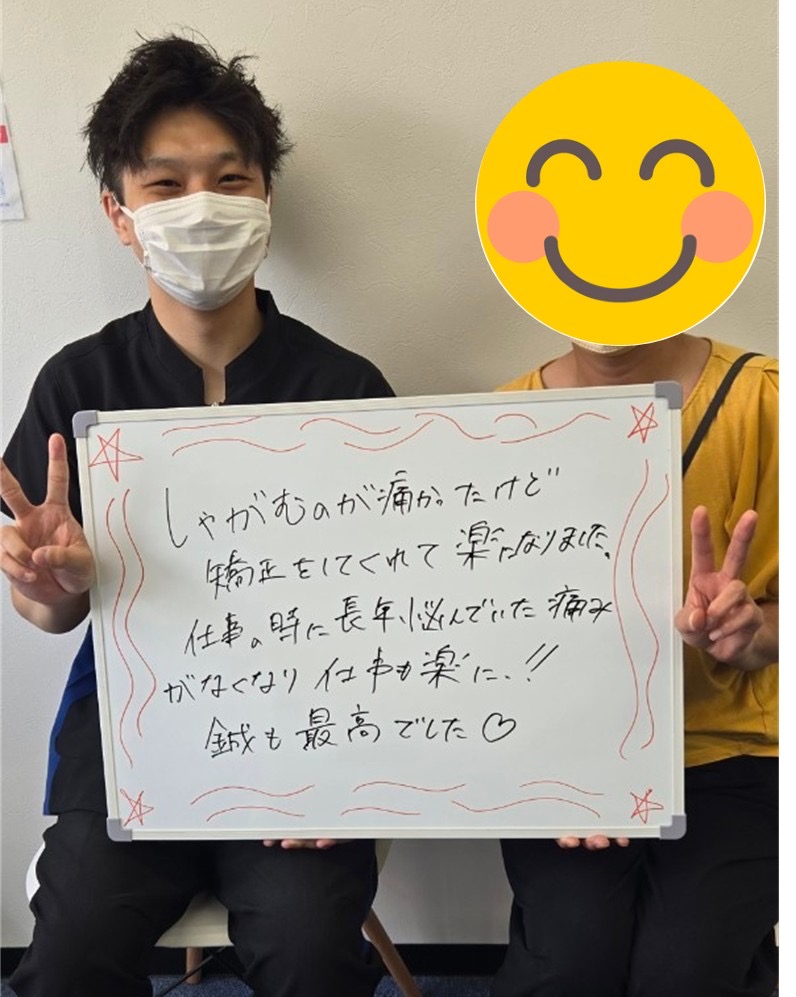 しゃがむのが痛かったけど
矯正をしてくれて楽になりました。
仕事の時に長年悩んでいた痛み
がなくなり仕事も楽に、!!
鍼も最高でした♡